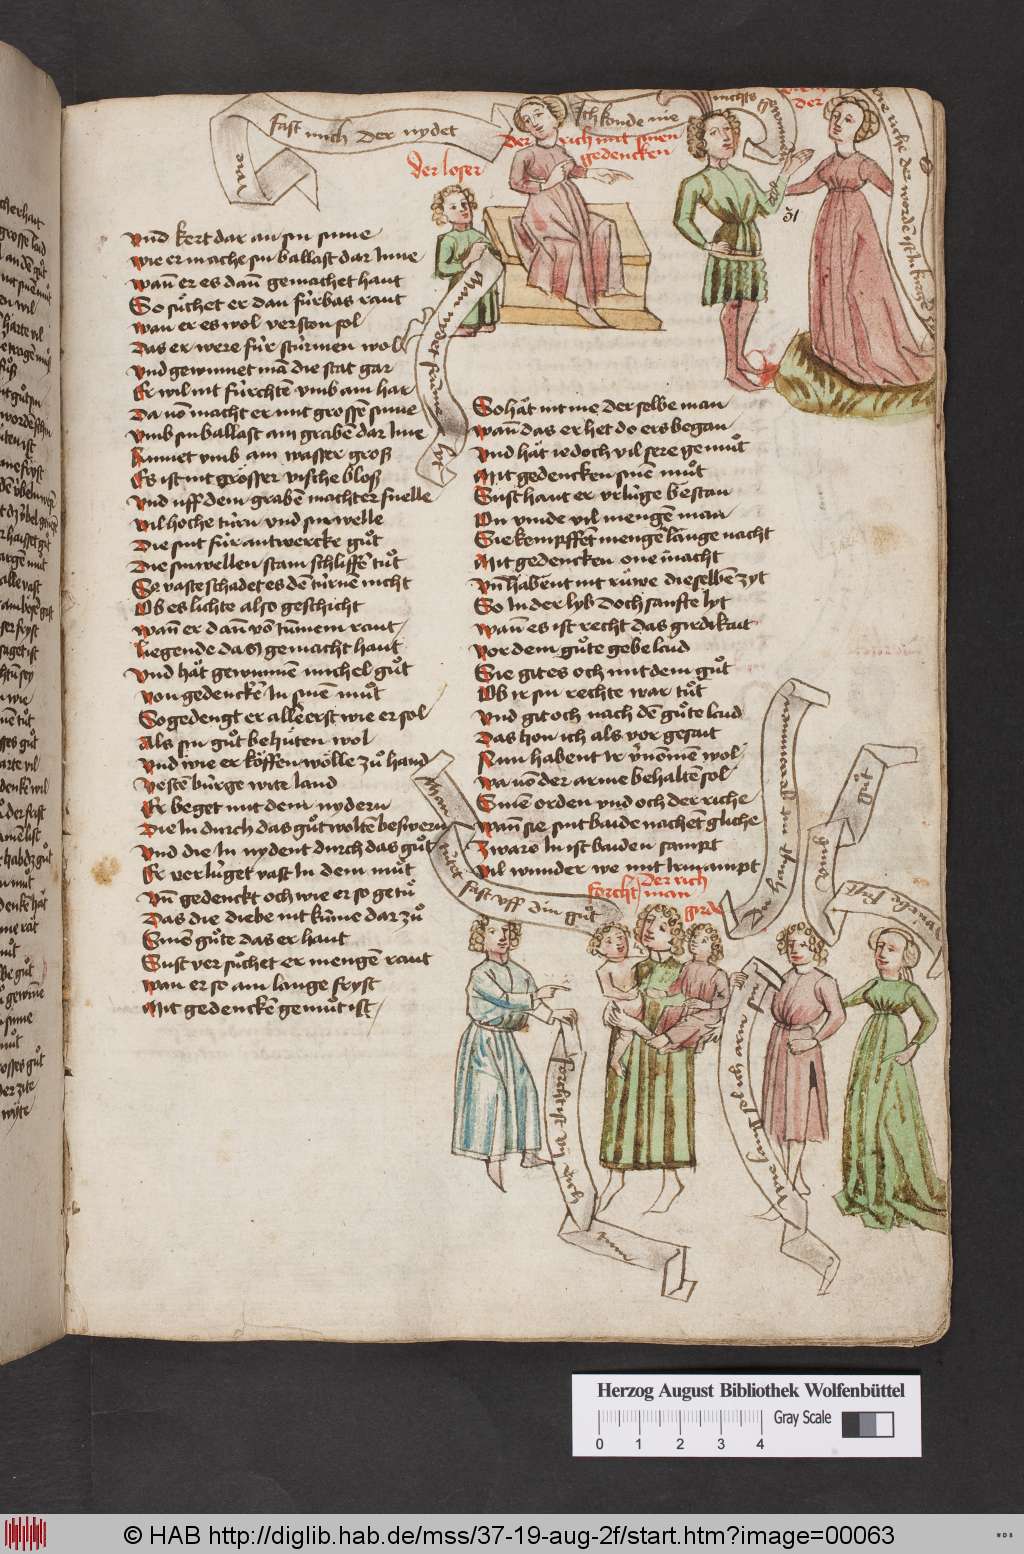 fast mich der nydet
Ich konde nie
der loser
Der rich mit sinen
gedencken
der
31
Vnd kert dar an sin sinne
Wie er mache sin ballast dar Inne
Wan̄ er es dan̄ gemachet hant
So sůchet er dan fúrbas rant
Wan er es wol verston sol
Das er were fúr stúrmen wol
Vnd gewinnet man die stat gar
Er wil nit fúrchtē vmb ain har
Da vō macht er mit grossē sinne
Vmb sin ballast ain grabē dar Inne
Rinnet vmb ain wasser groß
Es ist nit grösser vische bloß
Vnd vff dem grabē machter snelle
Vil hoche túrn vnd sinwelle
Die sint fúr antwercke gůt
Die sinwellen stain schliffē tůt
So vaste schadet es dē túrnē nicht
Ob es lichte also geschicht
Wan̄ er dan̄ vō túrnem rant
Ligende das gemacht hant
Vnd hät gewunnē michel gůt
Von gedenckē In sinē můt
So gedengt er allē erst wie er sol
Als sin gůt behüten wol
Vnd wie er köffen wölle zů hand
Vestē búrge wite land
Er beget mit dem nydern
Die In durch das gůt woltē beswern
Vnd die In nydent durch das gůt
Er verlúget vast In dem můt
Vn̄ gedenckt och wie er so getů
Das die diebe nit kume dar zů
Sinē gůte das er hant
Sust versůchet er mengē rant
Wan er so ain lange fryst
Mit gedenckē gemůt ist
So hät nit me der selbe man
Wan̄ das er het do ers began
Vnd hät iedoch vil sere gemůt
Mit gedencken sinē můt
Sust hant er vrlúge bestan
On vinde vil mengē man
Sie kempffēt mengē lange nacht
Mit gedencken one macht
Vn̄ habent nit růwe die selbē zyt
So In der lyb doch sanfte lyt
Wan̄ es ist recht das girdikait
Vor dem gůte gebe laid
Sie git es och mit dem gůt
Ob ir sin rechte war tůt
Vnd git och nach dē gůte laid
Das hon ich als vor gesait
Nun habent Ir v̄nōmen wol
Wa vō der arme behaltē sol
Sinē orden vnd och der riche
Wan̄ sie sint baide nachēt gliche
Zware In ist baiden sampt
Vil wunder we mit Irm ampt
tůtet fast vff din gůt
forcht
der rich
man
girde
gnůg
gůt
forcht ist
min